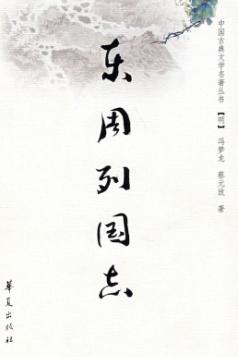 中国古典文学名著丛书
【明】冯梦龙 蔡元放 著
东周列国志
华夏出版社